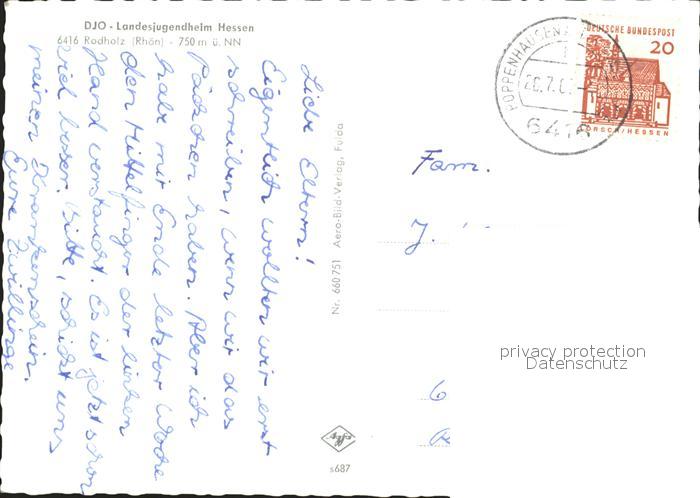 DJO - Landesjugendheim Hessen
6416 Rodholz (Rhön) - 750 m ü. NN
Liebe Eltern!
Eigentlich wollten wir erst
schreiben, wenn wir das
Päckchen haben. Aber ich
habe mir Ende letzter Woche
den Mittelfinger der linken
Hand verstaucht. Es ist jetzt schon
viel besser. Bitte, schickt uns
meinen Krankenschein.
Eure Zwillinge
Nr. 660751 Aero-Bild-Verlag, Fulda
s687
POPPENHAUSEN
26.7.6
6416
DEUTSCHE BUNDESPOST
20
LORSCH/HESSEN
Fam.
J.
6
privacy protection
Datenschutz